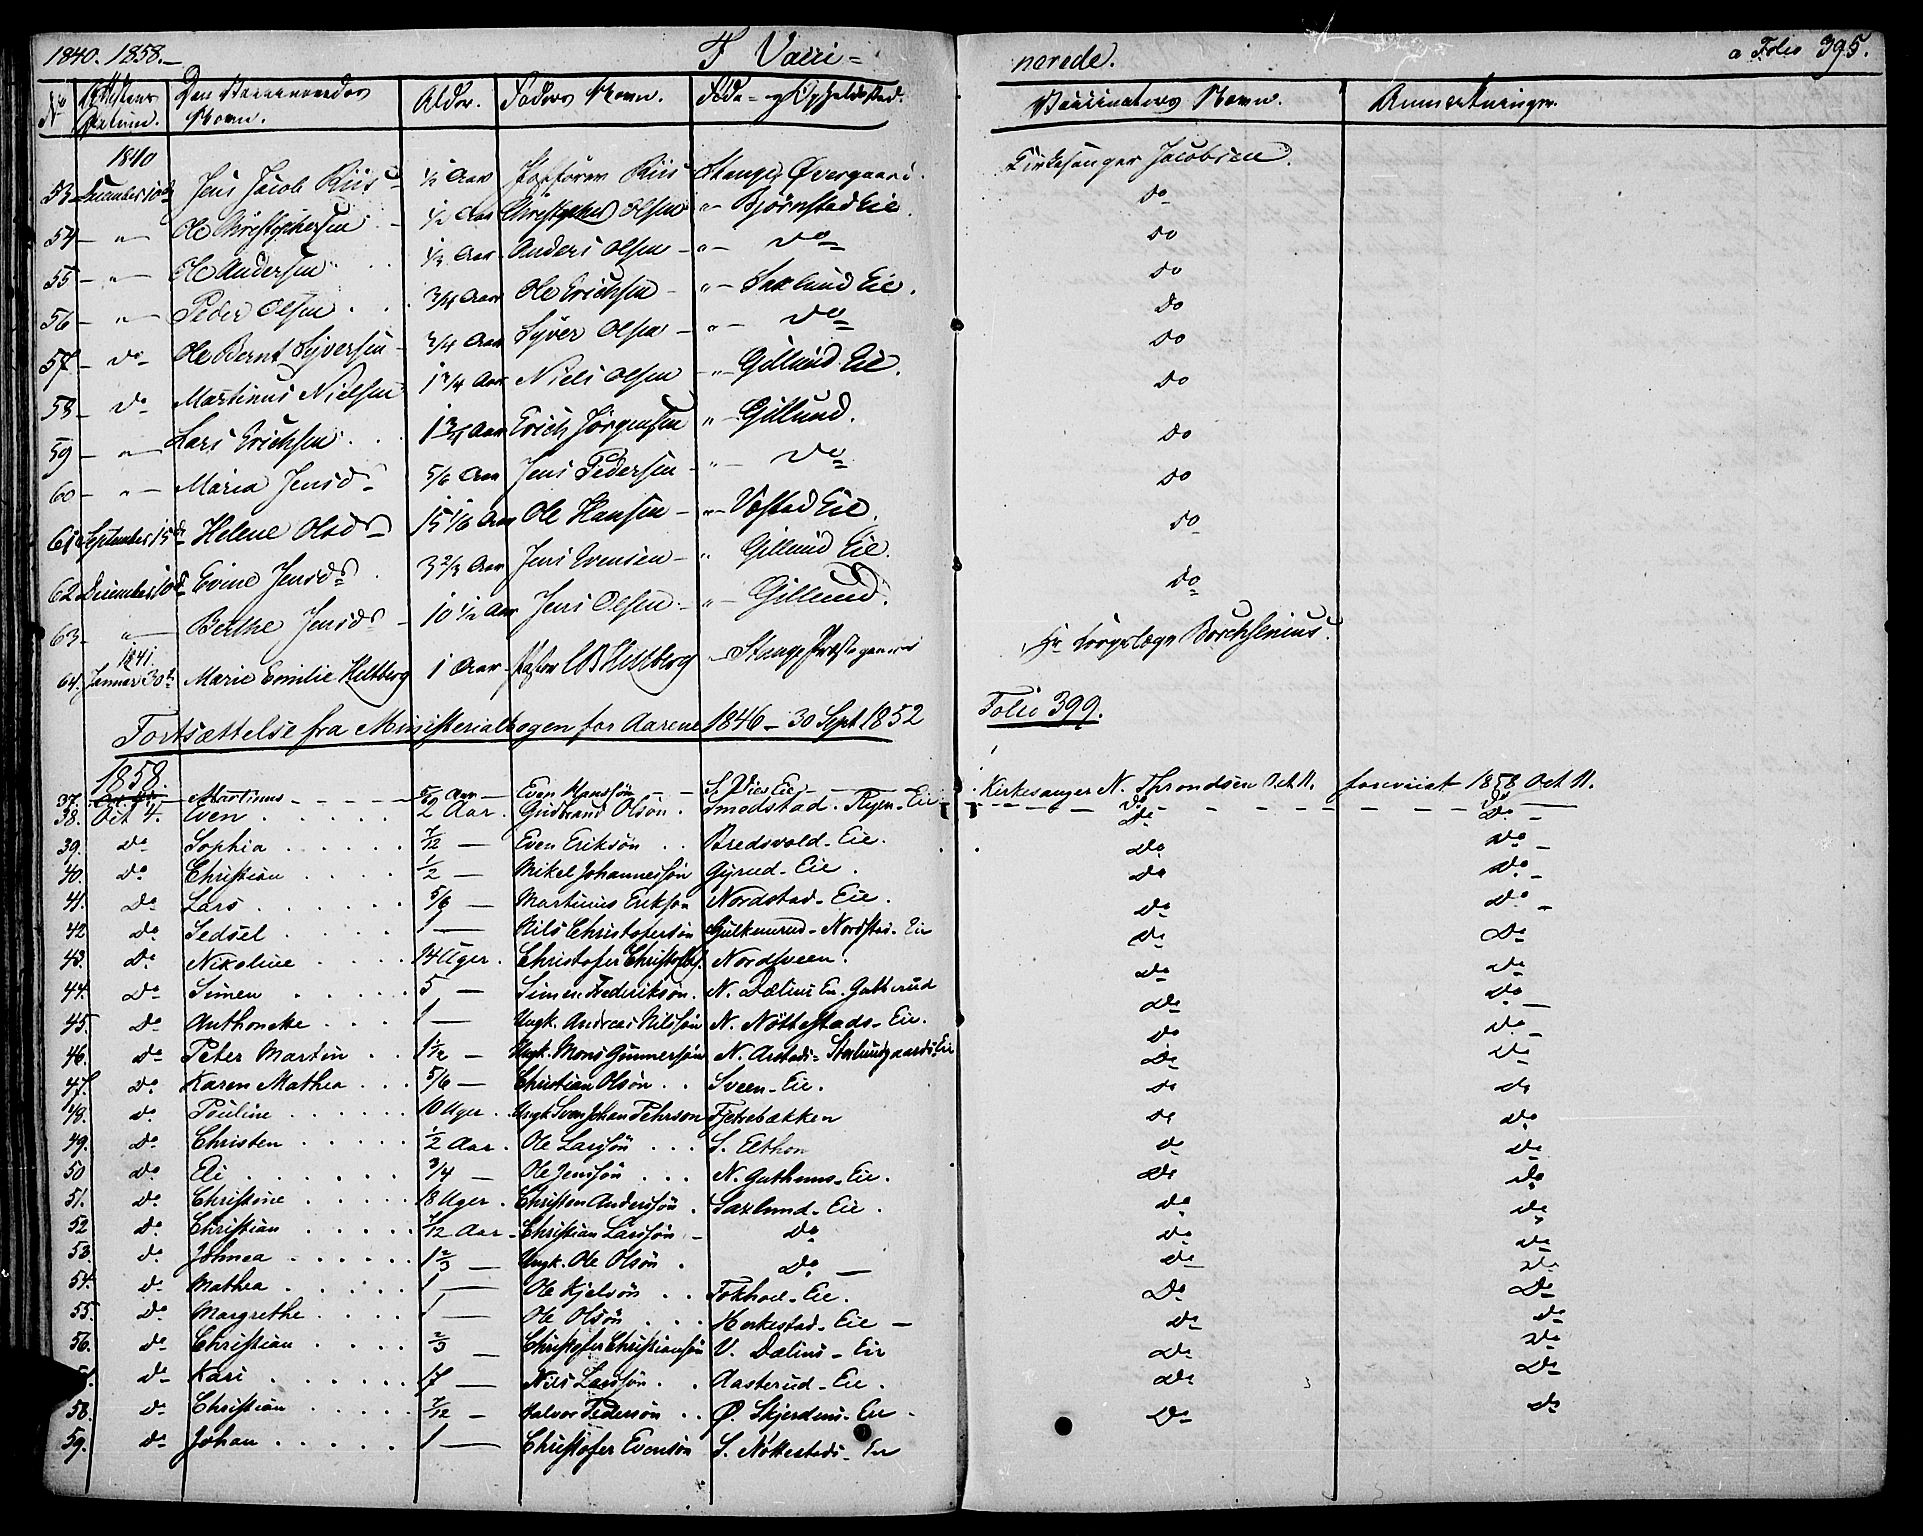 1840. 1858.
F Vacci=
nerede.
a Folio 395.
No Attestens Datum. Den Vaccineredes Navn. Alder. Faders Navn. Føde- og Opholdssted. Vaccinateurs Navn. Anmerkninger.
1840
53 December 10de Jens Jacob Riis ½ Aar Riis Stange Øvergaard. Kirkesanger Jacobsen.
54 — " — Ole Christophersen ½ Aar Christopher Olsen " Bjørnstad Eie. do
55 — " — Ole Andersen ½ Aar Anders Olsen " do do
56 — " — Peder Olsen 3/4 Aar Ole Erichsen " Saxlund Eie. do
57 — do Ole Bernt Syversen 3/4 Aar Syver Olsen " do do
58 — do Martinus Nielsen 1 3/4 Aar Niels Olsen " Gillund Eie. do
59 — " — Lars Erichsen 1 3/4 Aar Erich Jørgensen " Gillund. do
60 — " — Maria Jensd. 5/6 Aar Jens Pedersen " do do
61 September 15de Helene Olsd. 15 1/6 Aar Ole Hansen " Vostad Eie. do
62 December 10de Evine Jensd. 3 2/3 Aar Jens Evensen " Gillund Eie. do
63 — " — Berthe Jensd. 10 ½ Aar Jens Olsen " Gillund. do
1841.
64. Januar 30te Marie Emilie Heltberg 1 Aar Pastor Heltberg Stange Præstegaard Hr Corpslæge Borchsenius.
Fortsættelse fra Ministerialbogen for Aarene 1846 - 30 Sept 1852 Folio 399.
1858
37. Martinus Even Hanssøn S. Eie Kirkesanger N. Throndsen Oct 11. foreviist 1858 Oct 11.
38. Oct 4. Even 2 Aar. Gudbrand Olsøn. Smedstad - Ryen-Eie Do Do
39. Do Sophia 7/12 — Even Eriksøn Bredsvold-Eie. Do Do
40. Do Christian 1/2 — Mikel Johannessøn Gyrud-Eie. Do Do
41. Do Lars 5/6 — Martinus Eriksøn Nordstad-Eie. Do Do
42 Do Sedsel 1 — Nils Christofersøn Gulkerud-Nordsta-Eie Do Do
43. Do Nikoline 14 Uger. Christofer Nordsveen. Do Do
44. Do Simen 5 — Simen Frederiksøn. N. Dælins En. Gutterud Do Do
45. Do Anthonette 1 — Ungk. Andreas Nilssøn N. Nøttestads-Eie. Do Do
46. Do Peter Martin 1½ — Ungk. Mons Gunnersøn N. Arstads- Eie Do Do
47. Do Karen Mathea 5/6 — Christian Olsøn Sveen-Eie. Do Do
48. Do Pouline 10 Uger. Ungk Sven Johan Pehrson Fjetrebakken Do Do
49. Do Christen ½ Aar. Ole Larssøn S. Ilthon Do Do
50 Do Eli 3/4 — Ole Jenssøn N. Guthuus-Eie. Do Do
51. Do Christine 18 Uger. Christen Anderssøn. Saxlund-Eie. Do Do
52 Do Christian 7/12 Aar Christian Larssøn Do Do Do
53. Do Johnea 1 2/3 — Ungk. Ole Olsøn Do Do Do
54. Do Mathea 1 — Ole Kjelsøn Tokhod-Eie. Do Do
55. Do Margrethe 1 — Ole Olsøn Horkestad-Eie Do Do
56. Do Christian 2/3 — Christofer Christianssøn V. Dælins-Eie Do Do
Do Kari 17 — Nils Larssøn. Aasterud-Eie. Do Do
58. Do Christian 7/12 — Halvor Pedersøn Ø. Skjerdens-Eie Do Do
59. Do Johan 1 — Christofer Evensøn S. Nøttestads-Eie